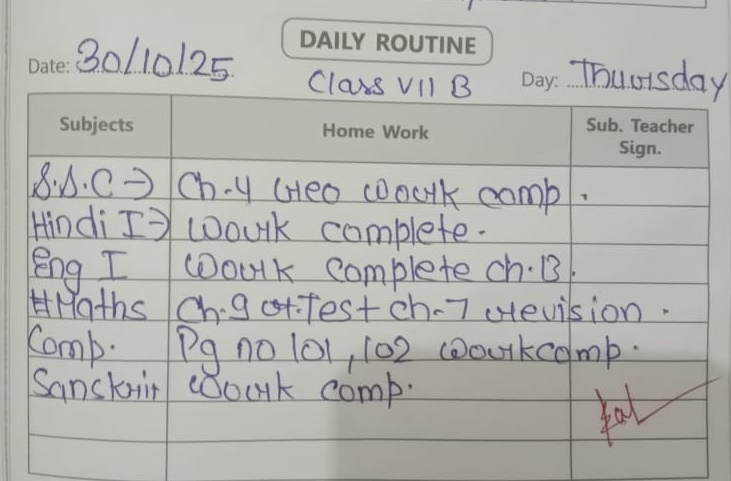 DAILY ROUTINE
Date: 30/10/25 Class VII B Day: Thursday
Subjects Home Work Sub. Teacher Sign.
S.S.C → Ch-4 Geo work comp.
Hindi I → work complete.
Eng I work complete ch.13.
#Maths Ch-9 Test ch-7 revision.
Comp. Pg no 101, 102 work comp.
Sanskrit work comp.